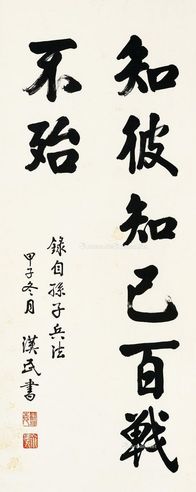 知彼知己百戰
不殆
錄自孫子兵法
甲子冬月
漢民書